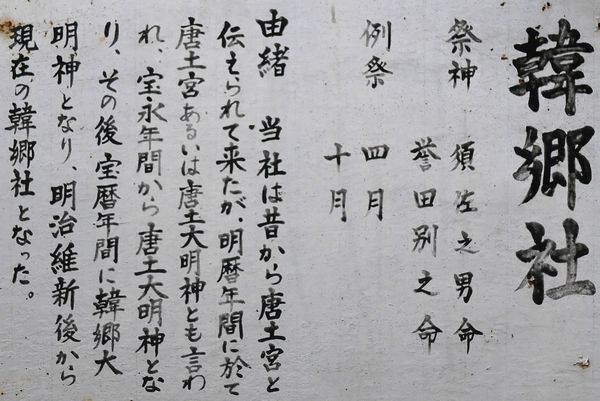 韓郷社
祭神 須佐之男命
誉田別之命
例祭 四月
十月
由緒 当社は昔から唐土宮と
伝えられて来たが、明暦年間に於て
唐土宮あるいは唐土大明神とも言わ
れ、宝永年間から唐土大明神とな
り、その後宝暦年間に韓郷大
明神となり、明治維新後から
現在の韓郷社となった。